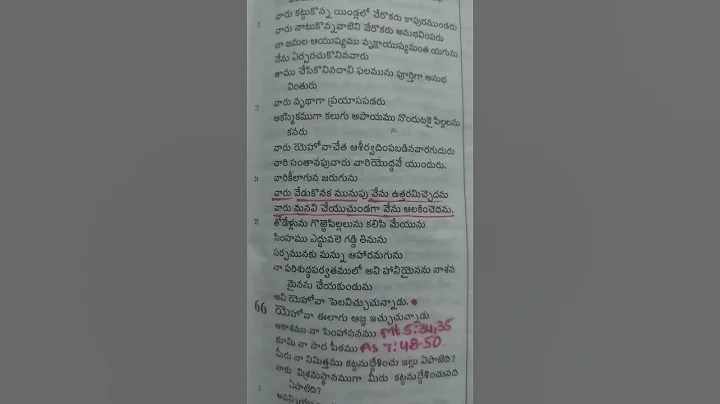 వారు కట్టుకొన్న యిండ్లలో వేరొకరు కాపురముండరు
వారు నాటుకొన్నవాటిని వేరొకరు అనుభవింపరు
నా జనుల ఆయుష్యము వృక్షాయుష్యమంత యగును
నేను ఏర్పరచుకొనినవారు
తాము చేసికొనినదాని ఫలమును పూర్తిగా అనుభ
వింతురు
23 వారు వృథాగా ప్రయాసపడరు
ఆకస్మికముగా కలుగు అపాయము నొందుటకై పిల్లలను
కనరు
వారు యెహోవాచేత ఆశీర్వదింపబడినవారగుదురు
వారి సంతానపువారు వారియొద్దనే యుందురు.
24 వారికీలాగున జరుగును
వారు వేడుకొనక మునుపు నేను ఉత్తరమిచ్చెదను
వారు మనవి చేయుచుండగా నేను ఆలకించెదను.
25 తోడేళ్లును గొఱ్ఱెపిల్లలును కలిసి మేయును
సింహము ఎద్దువలె గడ్డి తినును
సర్పమునకు మన్ను ఆహారమగును
నా పరిశుద్ధపర్వతములో అవి హానియైనను నాశన
మైనను చేయకుండును
అని యెహోవా సెలవిచ్చుచున్నాడు.
66 యెహోవా ఈలాగు ఆజ్ఞ ఇచ్చుచున్నాడు
ఆకాశము నా సింహాసనము Mt 5:34,35
భూమి నా పాద పీఠము As 7:48-50.
మీరు నా నిమిత్తము కట్టనుద్దేశించు ఇల్లు ఏపాటిది?
నాకు విశ్రమస్థానముగా మీరు కట్టనుద్దేశించునది
ఏపాటిది?